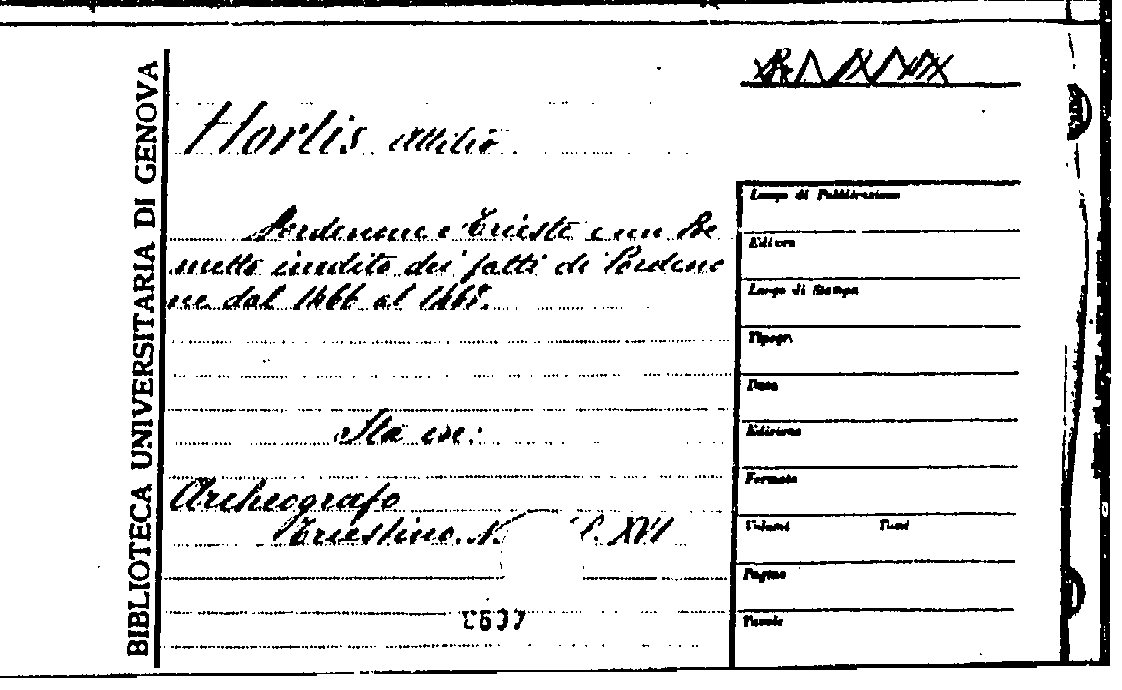 BIBLIOTECA UNIVERSITARIA DI GENOVA
Hortis Attilio
Pordenone e Trieste e un Po
metto inedito dei fatti di Pordeno
ne dal 1466 al 1468.
Sta in:
Archeografo
Triestino. N. XVI
Luogo di Pubblicazione
Editore
Luogo di Stampa
Tipogr.
Data
Edizione
Formato
Volumi Tomi
Pagine
Tavole